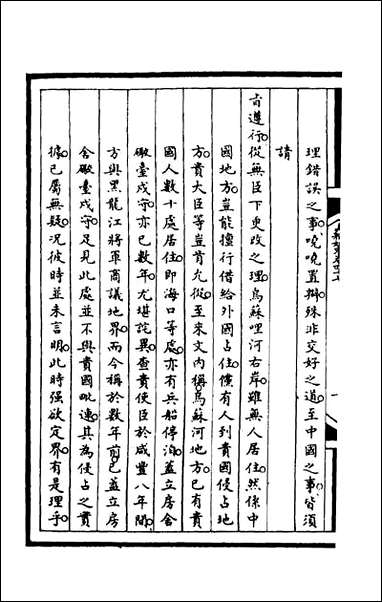 理錯誤之事嘵嘵置辯殊非交好之道至中國之事皆須
請
旨遵行從無臣下更改之理烏蘇哩河右岸雖無人居住然係中
國地方豈能擅行借給外國占住儻有人到貴國侵占地
方貴大臣等豈肯允從至來文內稱烏蘇河地方已有貴
國人數十處居住即海口等處亦有兵船停泊蓋立房舍
礮臺戍守亦已數年尤堪詫異查貴使臣於咸豐八年間
方與黑龍江將軍商議地界而今稱於數年前已蓋立房
舍礮臺戍守足見此處並不與貴國毗連其為侵占之實
據已屬無疑況彼時並未言明此時强欲定界有是理乎